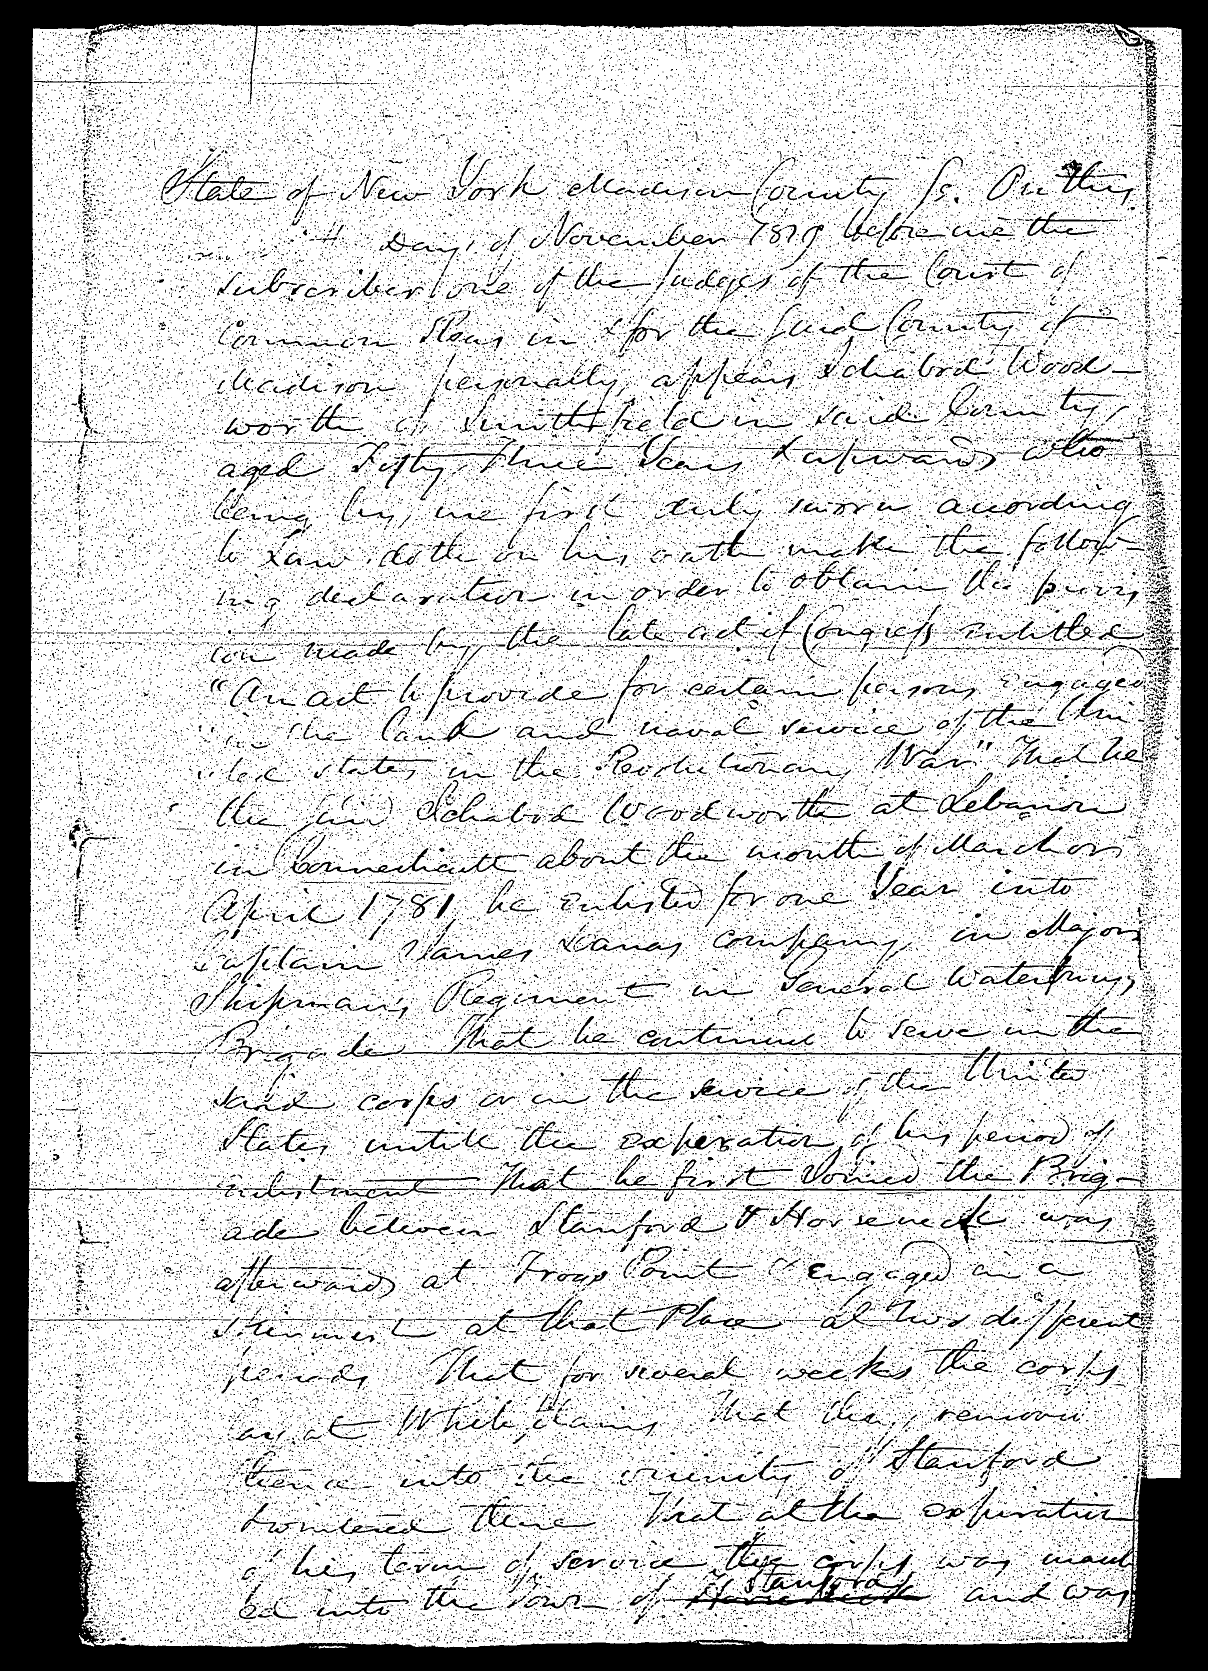 State of New York Madison County Ss. On this
4 Day of November 1819 before me the
subscriber one of the Judges of the Court of
Common Pleas in & for the said County of
Madison personally appears Ichabod Wood-
worth of Smithfield in said County,
aged Fifty Three Years & upwards who
being by me first duly sworn according
to Law doth on his oath make the follow-
ing declaration in order to obtain the provis
ion made by the late act of Congress entitled
"An act to provide for certain persons engaged
"in the land and naval service of the Uni-
"ted states in the Revolutionary War" That he
the said Ichabod Woodworth at Lebanon
in Connecticutt about the month of March or
April 1781 he Enlisted for one Year into
Captain James Danas company in Major
Shipmans Regiment in General Waterburys
Brigade That he continued to serve in the
said corps or in the service of the United
States untill the experation of his period of
enlistment That he first Joined the Brig-
ade between Stanford & Horseneck was
afterwards at Frogs Point & engaged in a
skirmish at that Place at two different
periods That for several weeks the corps
lay at White plains That they removed
thence into the vicinity of Stanford
& wintered there That at the expiration
of his term of service the corps was march
ed into the Town of Horseneck Stanford and was